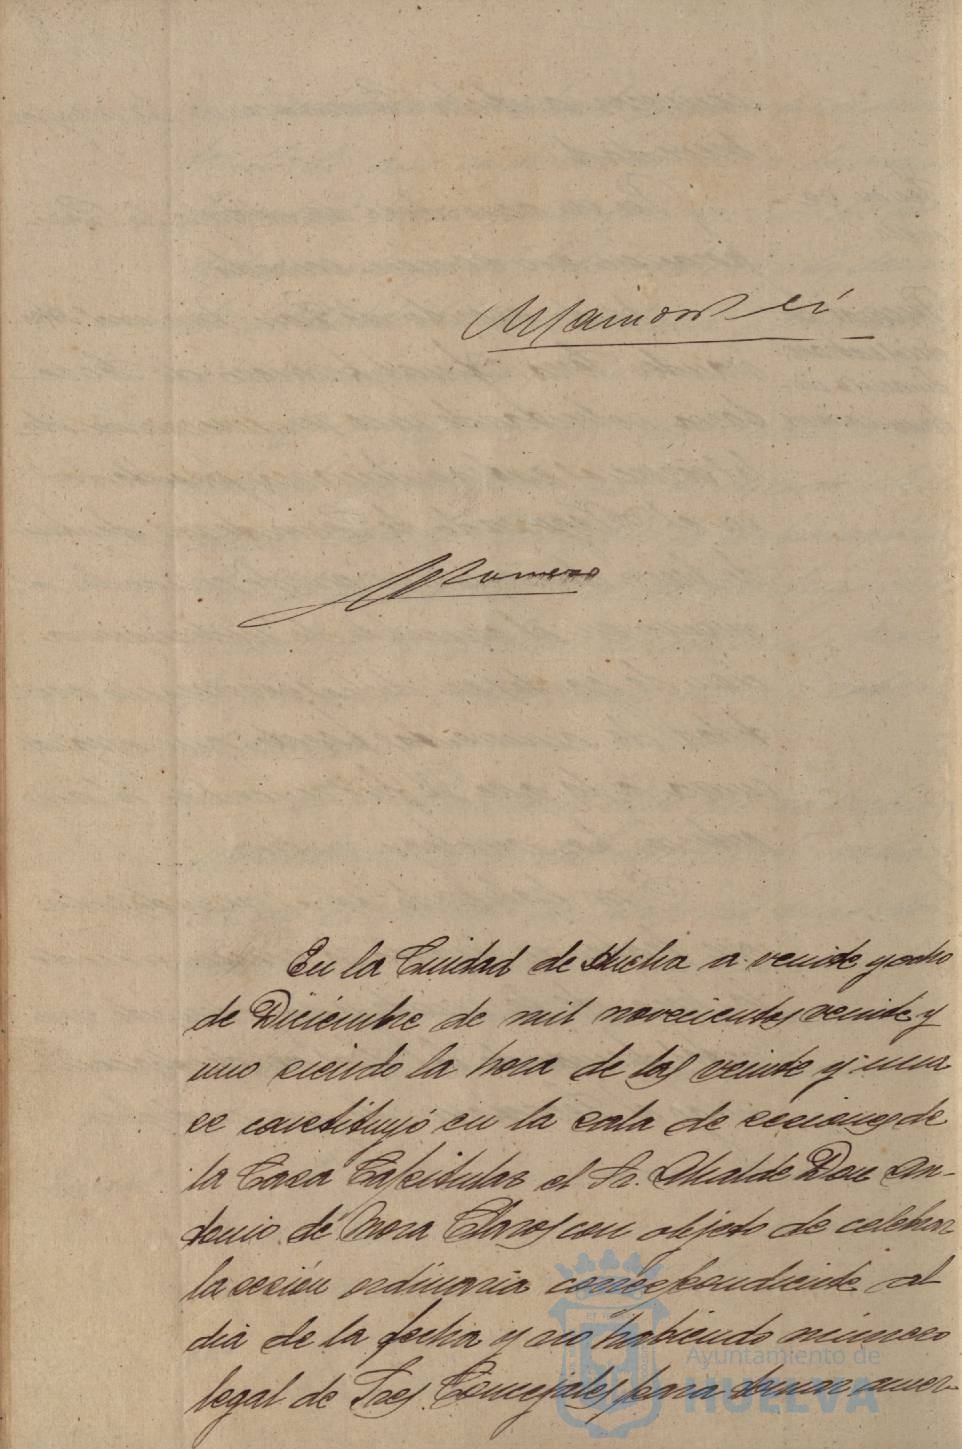 Romero
En la Ciudad de Huelva a veinte y ocho
de Diciembre de mil novecientos veinte y
uno siendo la hora de las veinte y una
se constituyó en la sala de sesiones de
la Casa Capitular el Sr. Alcalde Don An-
tonio de Mora Claros con objeto de celebrar
la sesión ordinaria correspondiente al
dia de la fecha y no habiendo número
legal de Sres. Concejales para tomar acuer-
Ayuntamiento de
HUELVA